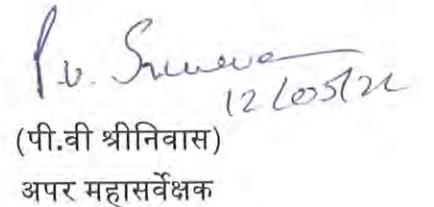 P.V. Srinivas
12/05/22
(पी.वी श्रीनिवास)
अपर महासर्वेक्षक